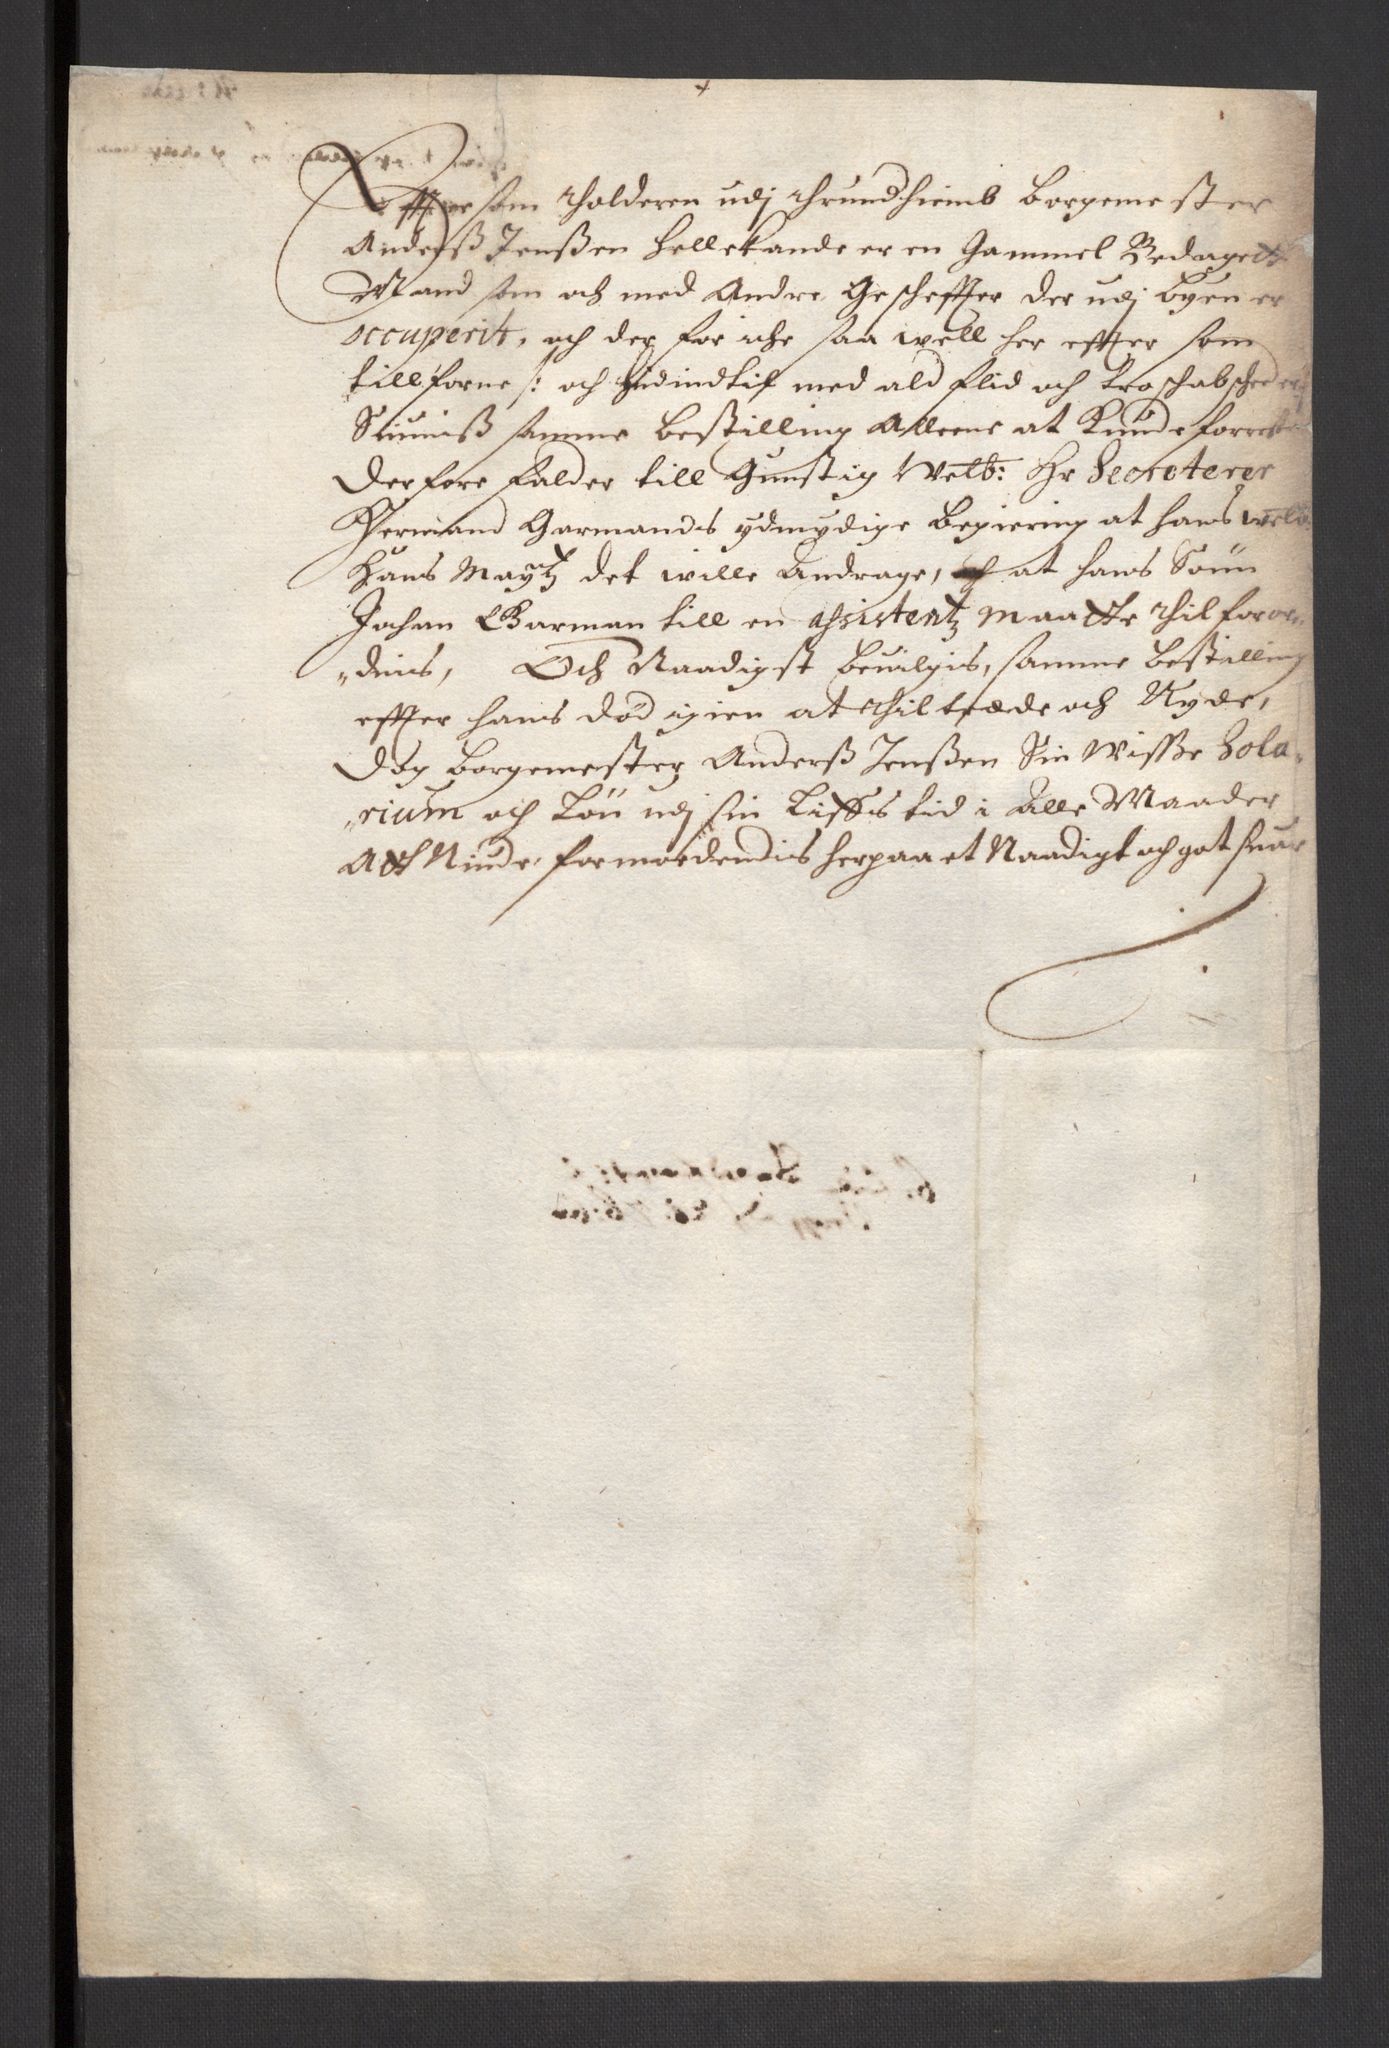 Effter som tholderen udj thrundhiemb Borgemester
Anderß Jenßen Hellekande er en Gammel Bedaget
Mand som och med Andre Gescheffter der udj byen er
occuperit, och der for iche saa well her effter som
till forne /: och endindtil med ald flid och troschab scheed er :/
Siuniß samme bestilling Alleene at kunde forrette
Derfore falder till Gunstig Welb: Hr Secreterer
Hermand Garmands ydmydige begiering at hans Welb:
Hans Maytz det wille Andrage, at hans Sönn
Johan Garman till en assistentz maatte thilforor„
„dnis, Och Naadigst beuilgis, samme bestilling
effter hans död igien at thiltræde och Nyde,
dog borgemester Anderß Jenßen Sin Wisse Sola„
„rium och Lön udj sin Liffs tid i alle Maader
Att Niude, formoedendis herpaa et Naadigt och got suar